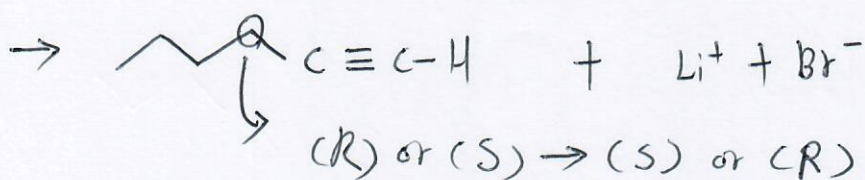 → C ≡ C-H + Li⁺ + Br⁻
(R) or (S) → (S) or (R)